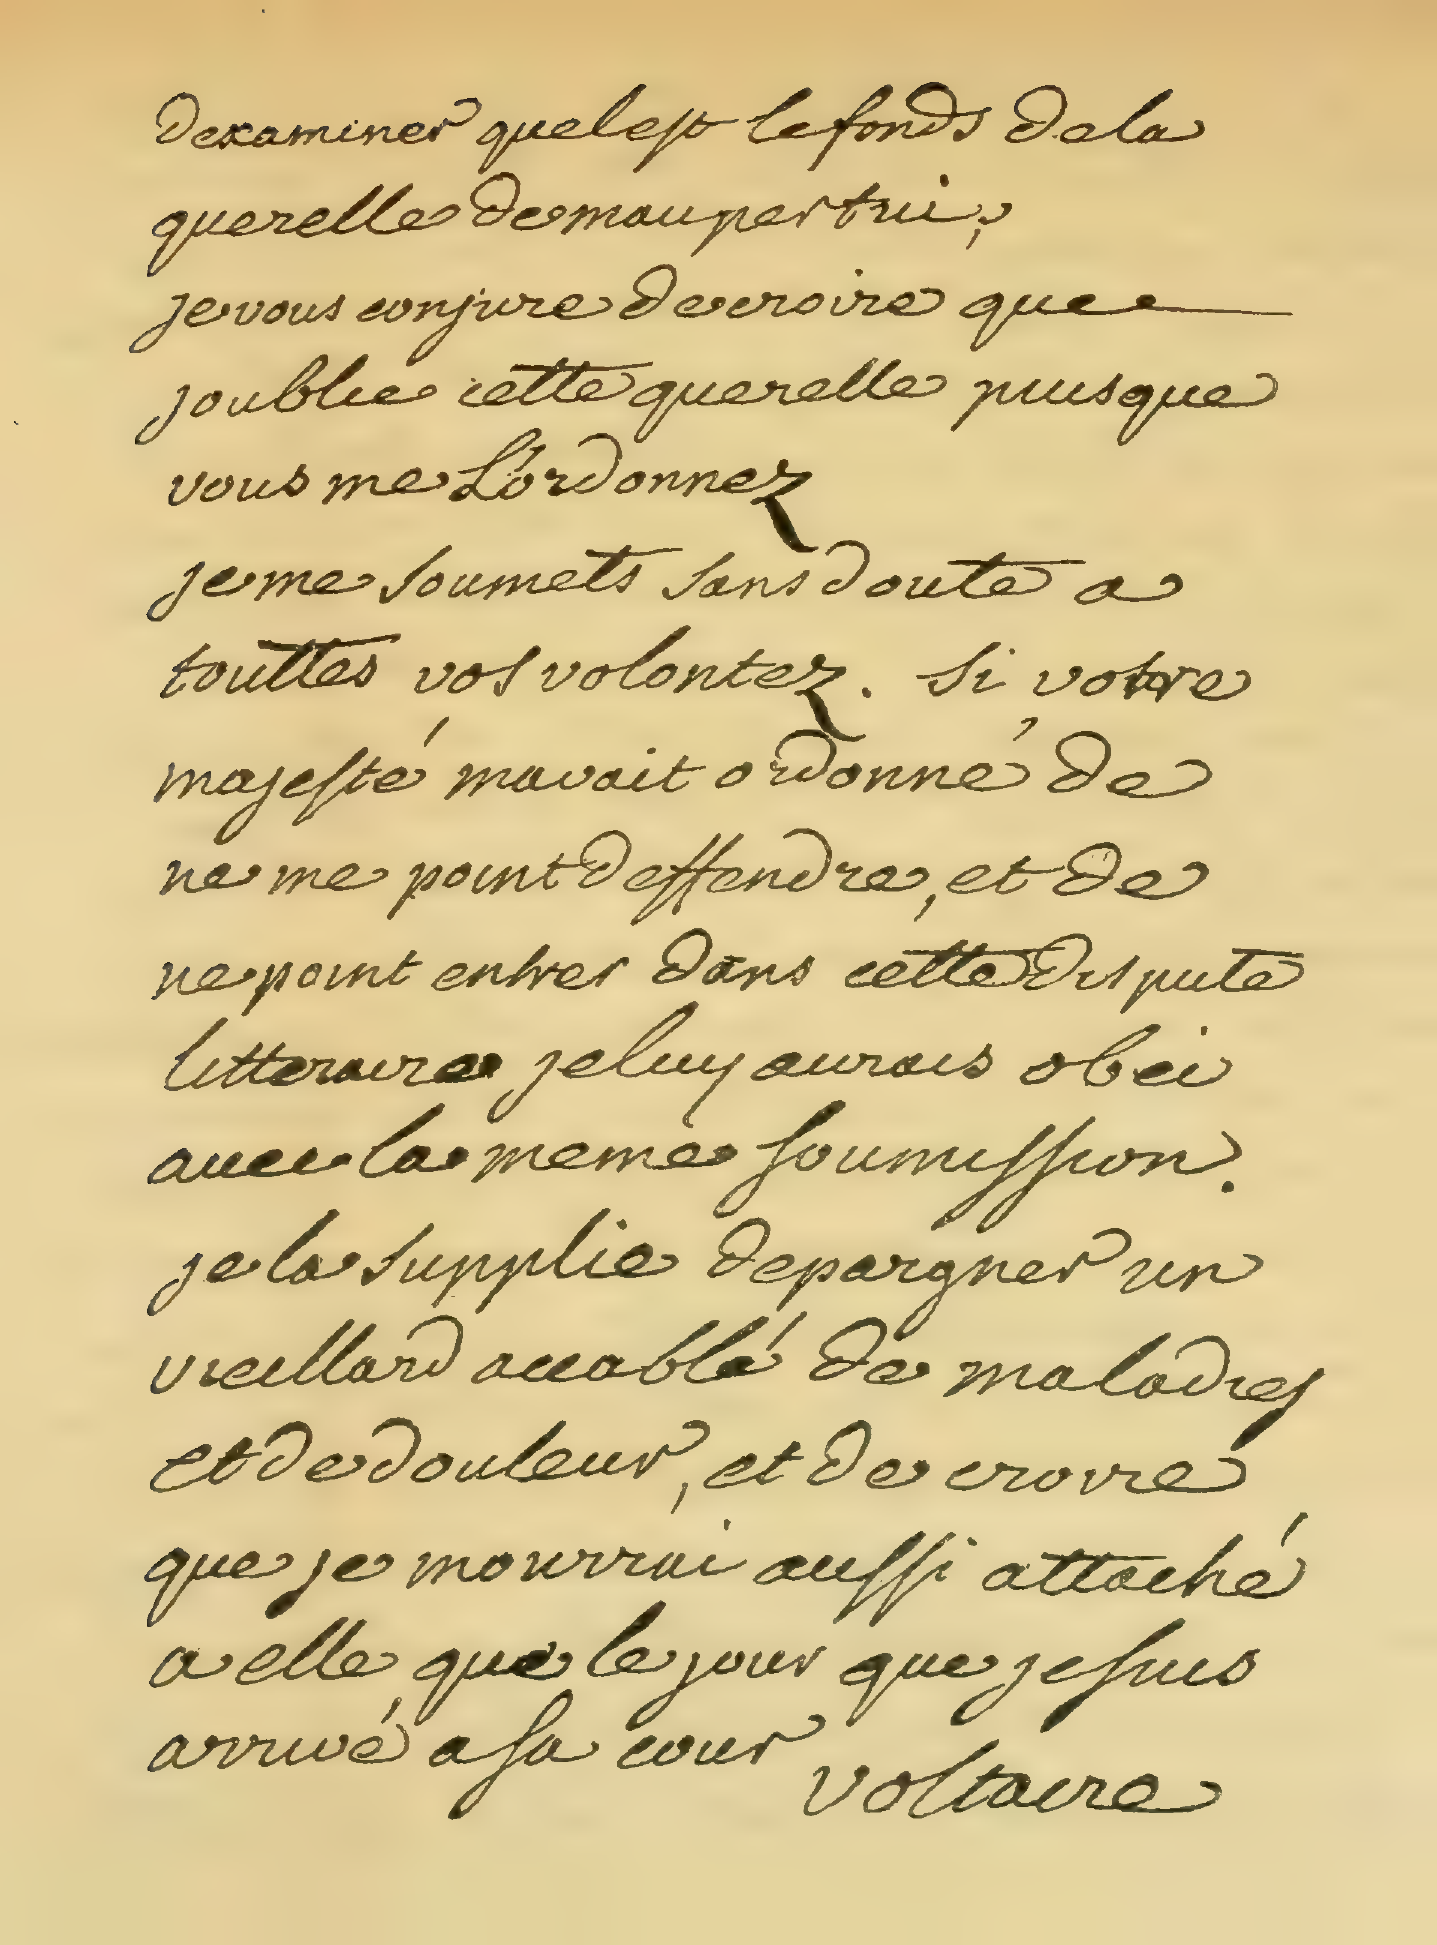 dexaminer quel est le fonds de la
querelle de maupertui,
je vous conjure de croire que
joublie cette querelle puisque
vous me L'ordonnez
je me soumets sans doute a
touttes vos volontez. Si votre
majesté mavait ordonné de
ne me point deffendre, et de
ne point entrer dans cette dispute
litteraire je luy aurais obei
avec la meme soumission.
je la supplie depargner un
vieillard accablé de maladies
et de douleur, et de croire
que je mourrai aussi attaché
a elle, que le jour que je suis
arrivé a sa cour
voltaire